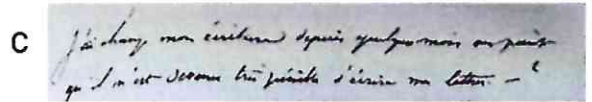 C
J'ai chang mon écriture depuis quelques mois au point
qu'il m'est devenu très pénible d'écrire une lettre —